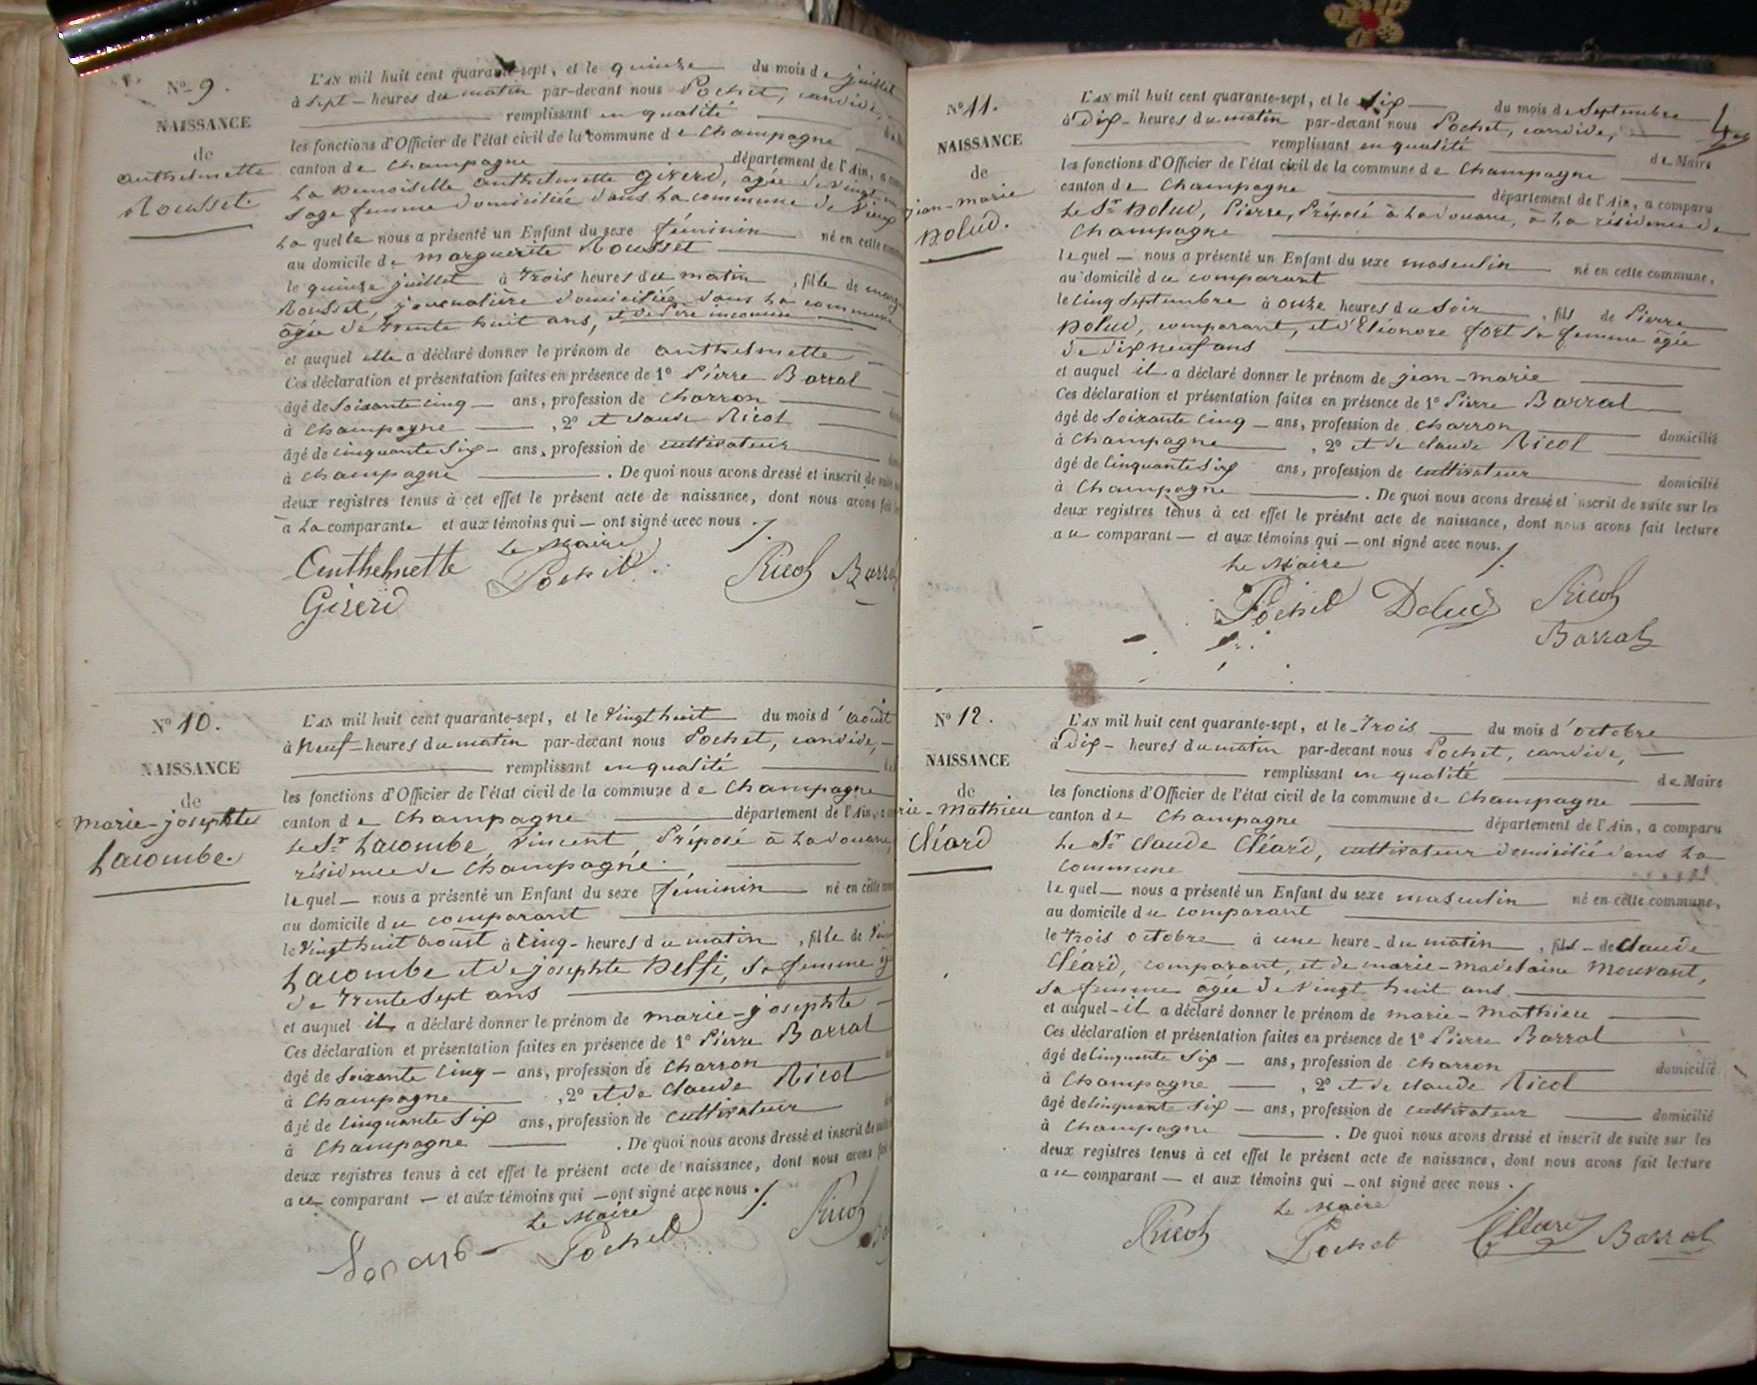 N° 9.
NAISSANCE
de
anthelmette
Rousset.
L'AN mil huit cent quarante-sept, et le quinze du mois de juillet
à sept heures du matin par-devant nous Pochet, candide,
remplissant en qualité
les fonctions d'Officier de l'état civil de la commune de Champagne
canton de Champagne département de l'Ain, a
La Demoiselle anthelmette Girerd, âgée de vingt
sage femme domiciliée dans la commune de Vieu
La quelle nous a présenté un Enfant du sexe féminin né en cette
au domicile de marguerite Rousset
le quinze juillet à trois heures du matin, fille de
Rousset, journalière domiciliée dans la commune
âgée de trente huit ans, et de père inconnu
et auquel elle a déclaré donner le prénom de anthelmette
Ces déclaration et présentation faites en présence de 1° Pierre Barral
âgé de soixante cinq ans, profession de charron
à Champagne, 2° et Claude Ricol
âgé de cinquante six ans, profession de cultivateur
à Champagne. De quoi nous avons dressé et inscrit de
deux registres tenus à cet effet le présent acte de naissance, dont nous avons fait
à La comparante et aux témoins qui — ont signé avec nous ./.
Le Maire
Anthelmette Pochet Ricol Barral
Girerd
N° 10.
NAISSANCE
de
marie-josephte
Lacombe.
L'AN mil huit cent quarante-sept, et le vingt huit du mois d'août
à neuf heures du matin par-devant nous Pochet, candide,
remplissant en qualité
les fonctions d'Officier de l'état civil de la commune de Champagne
canton de Champagne département de l'Ain,
Le Sr Lacombe, Vincent, Préposé à la douane,
résidence de Champagne.
le quel — nous a présenté un Enfant du sexe féminin né en cette
au domicile du comparant
le vingt huit août à cinq heures du matin, fille de
Lacombe et de josephte Delfi, sa femme
de trente sept ans
et auquel il a déclaré donner le prénom de marie-josephte
Ces déclaration et présentation faites en présence de 1° Pierre Barral
âgé de soixante cinq — ans, profession de charron
à Champagne, 2° et de Claude Ricol
âgé de cinquante six ans, profession de cultivateur
à Champagne. De quoi nous avons dressé et inscrit de
deux registres tenus à cet effet le présent acte de naissance, dont nous avons
au comparant — et aux témoins qui — ont signé avec nous ./.
Le Maire
Pochet Ricol
N° 11.
NAISSANCE
de
jean-marie
Dolud.
L'AN mil huit cent quarante-sept, et le six du mois de Septembre
à Dix heures du matin par-devant nous Pochet, candide,
remplissant en qualité de Maire
les fonctions d'Officier de l'état civil de la commune de Champagne
canton de Champagne département de l'Ain, a comparu
Le Sr Dolud, Pierre, Préposé à la douane, à la résidence de
Champagne
le quel — nous a présenté un Enfant du sexe masculin né en cette commune,
au domicile du comparant
le cinq septembre à onze heures du soir, fils de Pierre
Dolud, comparant, et d'Eléonore fort sa femme âgée
de dix neuf ans
et auquel il a déclaré donner le prénom de jean-marie
Ces déclaration et présentation faites en présence de 1° Pierre Barral
âgé de soixante cinq — ans, profession de charron domicilié
à Champagne, 2° et de claude Ricol
âgé de cinquante six ans, profession de cultivateur domicilié
à Champagne. De quoi nous avons dressé et inscrit de suite sur les
deux registres tenus à cet effet le présent acte de naissance, dont nous avons fait lecture
au comparant — et aux témoins qui — ont signé avec nous. ./.
Le Maire
Pochet Dolud Ricol
Barral
N° 12.
NAISSANCE
de
rie-Mathieu
Cléard
L'AN mil huit cent quarante-sept, et le trois du mois d'octobre
à Dix heures du matin par-devant nous Pochet, candide,
remplissant en qualité de Maire
les fonctions d'Officier de l'état civil de la commune de Champagne
canton de Champagne département de l'Ain, a comparu
Le Sr claude Cléard, cultivateur domicilié dans la
commune
le quel — nous a présenté un Enfant du sexe masculin né en cette commune,
au domicile du comparant
le trois octobre à une heure du matin, fils de Claude
Cléard, comparant, et de marie-madelaine Mouvant,
sa femme âgée de vingt huit ans
et auquel il a déclaré donner le prénom de marie-mathieu
Ces déclaration et présentation faites en présence de 1° Pierre Barral
âgé de cinquante six — ans, profession de charron domicilié
à Champagne, 2° et de claude Ricol
âgé de cinquante six — ans, profession de cultivateur domicilié
à Champagne. De quoi nous avons dressé et inscrit de suite sur les
deux registres tenus à cet effet le présent acte de naissance, dont nous avons fait lecture
au comparant — et aux témoins qui — ont signé avec nous ./.
Le Maire
Ricol Pochet Barral